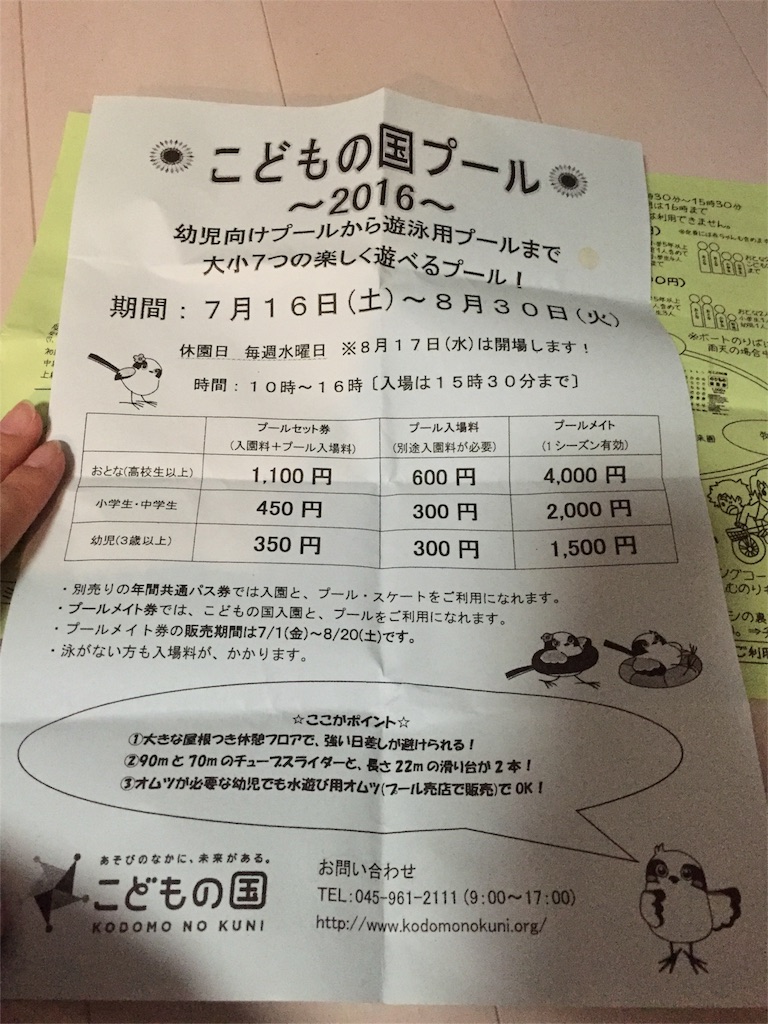 こどもの国プール
～2016～
幼児向けプールから遊泳用プールまで
大小7つの楽しく遊べるプール！
期間：7月16日(土)～8月30日(火)
休園日 毎週水曜日 ※8月17日(水)は開場します！
時間：10時～16時〔入場は15時30分まで〕
プールセット券 プール入場料 プールメイト
(入園料＋プール入場料) (別途入園料が必要) (1シーズン有効)
おとな(高校生以上) 1,100円 600円 4,000円
小学生・中学生 450円 300円 2,000円
幼児(3歳以上) 350円 300円 1,500円
・別売りの年間共通パス券では入園と、プール・スケートをご利用になれます。
・プールメイト券では、こどもの国入園と、プールをご利用になれます。
・プールメイト券の販売期間は7/1(金)～8/20(土)です。
・泳がない方も入場料が、かかります。
☆ここがポイント☆
①大きな屋根つき休憩フロアで、強い日差しが避けられる！
②90mと70mのチューブスライダーと、長さ22mの滑り台が2本！
③オムツが必要な幼児でも水遊び用オムツ(プール売店で販売)でOK！
あそびのなかに、未来がある。
こどもの国
KODOMO NO KUNI
お問い合わせ
TEL:045-961-2111（9:00～17:00）
http://www.kodomonokuni.org/
30分～15時30
は16時まで
利用できません。
0円)
※ボートのりば
雨天の場合中